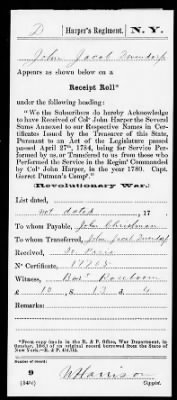 D | Harper's Regiment, | N.Y.
John Jacob
Appears as shown below on a
Receipt Roll*
under the following heading:
"We the Subscribers do hereby Acknowledge
to have Received of Col° John Harper the Several
Sums Annexed to our Respective Names in Cer-
tificates Issued by the Treasurer of this State,
Pursuant to an Act of the Legislature passed
passed April 27th, 1784, being for Service Per-
formed by us, or Transfered to us from those who
Performed the Service in the Regim' Commanded by
Col° John Harper, in the year 1780. Capt.
Garret Putman's Comp'."
(Revolutionary War.)
List dated,
not dated, 17
To whom Payable, John Christman
To whom Transferred, John Jacob
Received,
N° Certificate,
Witness,
£ 10, 8 13, d 4
Remarks:
*From copy (made in the R. & P. Office, War Department, in
October, 1883) of an original record borrowed from the State of
New York.—R. & P.
Number of record:
9
Harrison
Copyist.